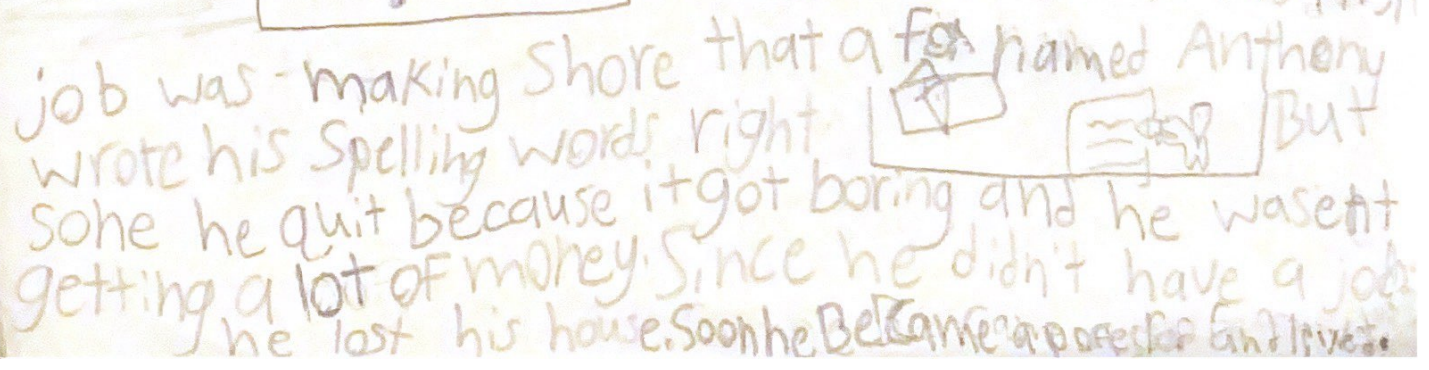 job was making shore that a fox named Anthony
wrote his spelling words right But
sohe he quit because it got boring and he wasent
getting a lot of money. Since he didn't have a job
he lost his house. Soon he Became a and